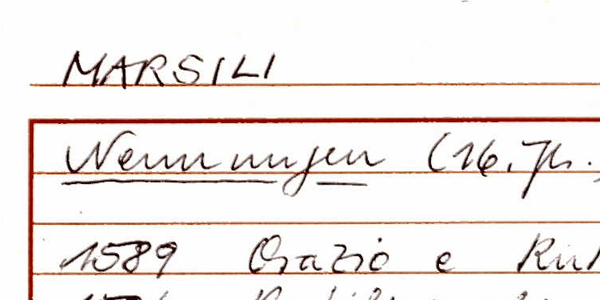 MARSILI
Nennungen (16. Jh.
1589 Orazio e